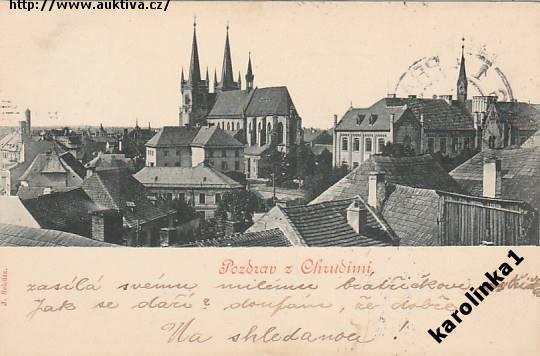 http://www.auktiva.cz/
Pozdrav z Chrudimi.
zasílá svému milému bratříčkove
Jak se daří? doufám, že dobře
Na shledanou!
karolinka1